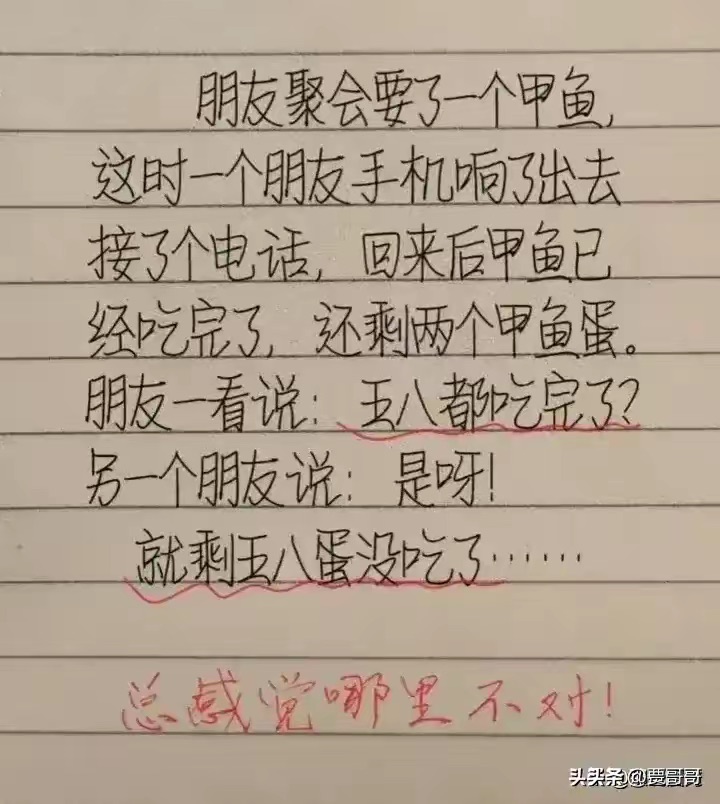 朋友聚会要了一个甲鱼,
这时一个朋友手机响了出去
接了个电话, 回来后甲鱼已
经吃完了, 还剩两个甲鱼蛋。
朋友一看说: 王八都吃完了?
另一个朋友说: 是呀!
就剩王八蛋没吃了……
总感觉哪里不对!
头头条@贾哥哥